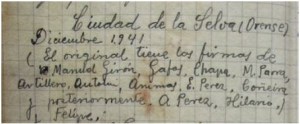 Ciudad de la Selva (Orense)
Diciembre 1941
( El original tiene las firmas de
Manuel Girón, Gafas, Chapa, M. Parra,
Artillero, Autolín, Animas, E. Perez, Coneira
y posteriormente, A. Perez, Hilario,)
Felipe,